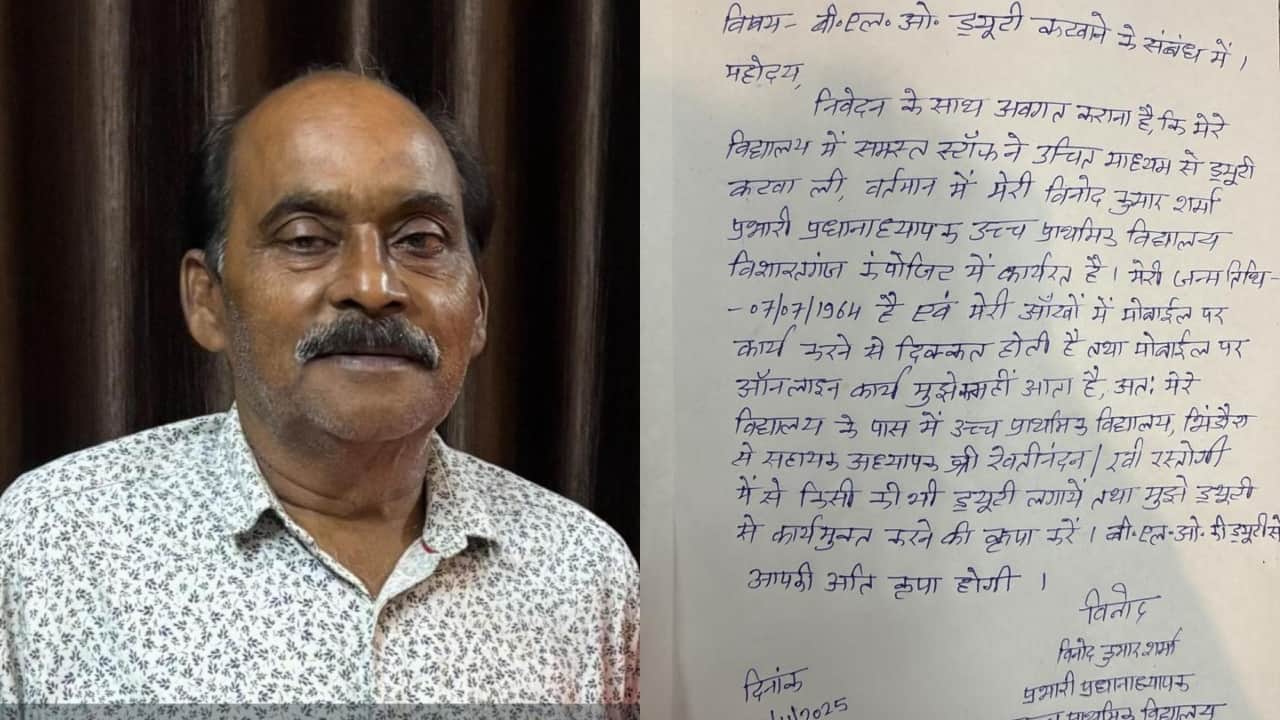 विषय- बी.एल.ओ. ड्यूटी कटवाने के संबंध में।
महोदय,
निवेदन के साथ अवगत कराना है, कि मेरे
विद्यालय में समस्त स्टॉफ ने उचित माध्यम से ड्यूटी
कटवा ली, वर्तमान में मेरी विनोद कुमार शर्मा
प्रभारी प्रधानाध्यापक उच्च प्राथमिक विद्यालय
विशारतगंज कंपोजिट में कार्यरत है। मेरी जन्म तिथि-
-07/07/1964 है एवं मेरी आँखों में मोबाईल पर
कार्य करने से दिक्कत होती है तथा मोबाईल पर
ऑनलाइन कार्य मुझे नहीं आता है, अतः मेरे
विद्यालय के पास में उच्च प्राथमिक विद्यालय,
से सहायक अध्यापक श्री रेवतीनंदन / रवी रस्तोगी
में से किसी की भी ड्यूटी लगायें तथा मुझे ड्यूटी
से कार्यमुक्त करने की कृपा करें। बी.एल.ओ. की ड्यूटी से
आपकी अति कृपा होगी ।
विनोद
विनोद कुमार शर्मा
प्रभारी प्रधानाध्यापक
प्राथमिक विद्यालय
दिनांक
/2025